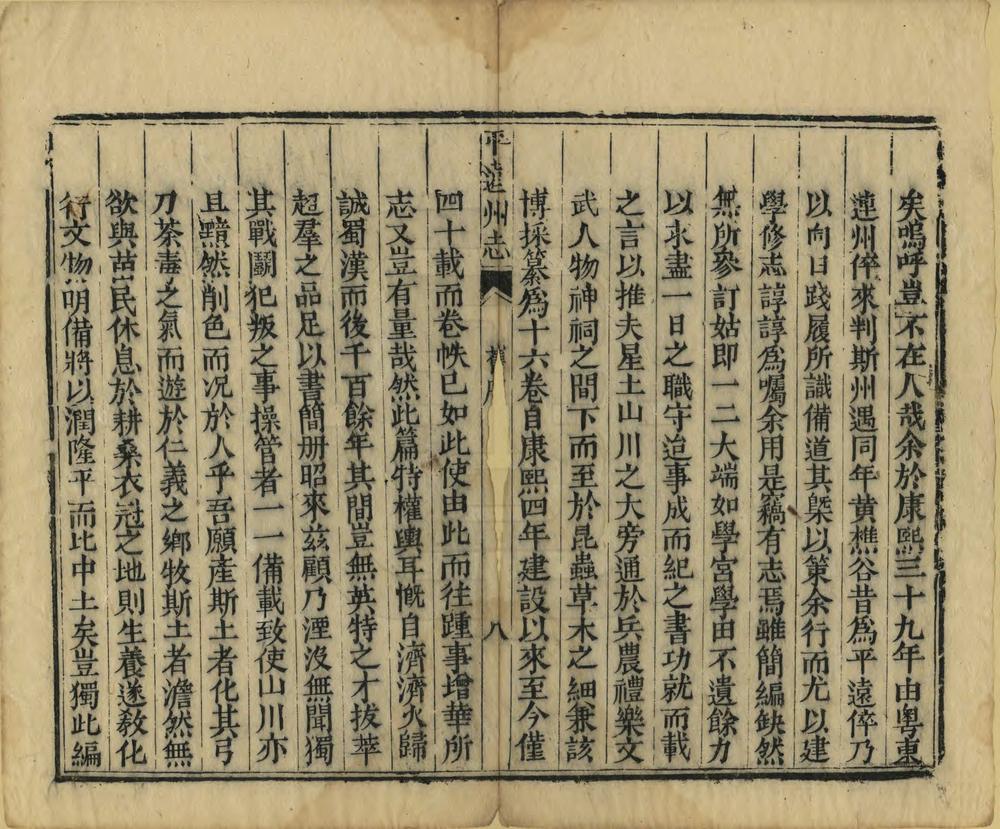 矣嗚呼豈不在人哉余於康熙三十九年由粵東
連州倅來判斯州遇同年黃樵谷昔爲平遠倅乃
以向日踐履所識備道其槩以策余行而尤以建
學修志諄諄爲囑余用是竊有志焉雖簡編缺然
無所參訂姑即一二大端如學宮學田不遺餘力
以求盡一日之職守迨事成而紀之書功就而載
之言以推夫星土山川之大旁通於兵農禮樂文
武人物神祠之間下而至於昆蟲草木之細兼該
博採纂爲十六卷自康熙四年建設以來至今僅
平遠州志
舊序
八
四十載而卷帙已如此使由此而往踵事增華所
志又豈有量哉然此篇特權輿耳慨自濟濟火歸
誠蜀漢而後千百餘年其間豈無英特之才拔萃
超羣之品足以書簡册昭來茲顧乃湮沒無聞獨
其戰鬬犯叛之事操管者一一備載致使山川亦
且黯然削色而况於人乎吾願產斯土者化其弓
刀荼毒之氣而遊於仁義之鄉牧斯土者澹然無
欲與苗民休息於耕桑衣冠之地則生養遂敎化
行文物明備將以潤隆平而比中土矣豈獨此編